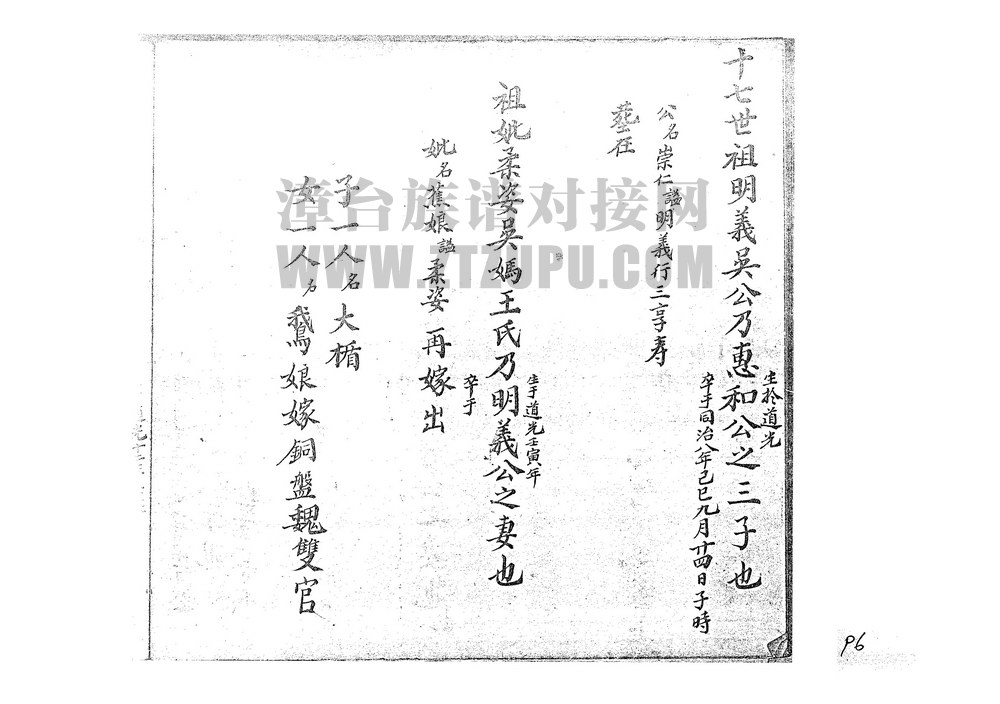 十七世祖明義吳公乃惠和公之三子也
生於道光
卒于同治八年己巳九月廿四日子時
公名崇仁謚明義行三享寿
葬在
祖妣柔姿吳媽王氏乃明義公之妻也
生于道光壬寅年
卒于
妣名蕉娘謚柔姿再嫁出
子一人名大楯
女一人名鵞娘嫁銅盤魏雙官
漳台族谱对接网
WWW.ZTZUPU.COM
P6